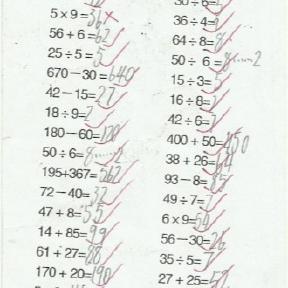 5×9=36
56+6=62
25÷5=5
670-30=640
42-15=27
18÷9=2
180-60=120
50÷6=8……2
195+367=562
72-40=32
47+8=55
14+85=99
61+27=88
170+20=190
30÷6=
36÷4=
64÷8=8
50÷6=8……2
15÷3=5
16÷8=2
42÷6=7
400+50=450
38+26=64
93-8=85
49÷7=7
6×9=54
56-30=26
35÷5=7
27+25=52